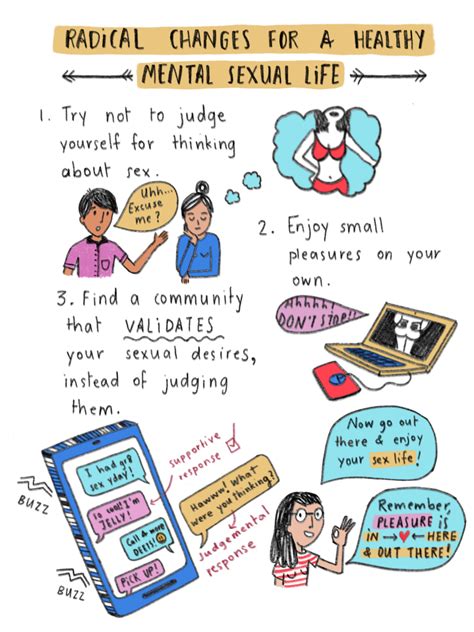 RADICAL CHANGES FOR A HEALTHY
MENTAL SEXUAL LIFE
1. Try not to judge
yourself for thinking
about sex.
Uhh...
Excuse
me?
2. Enjoy small
pleasures on your
own.
Ahhhhh!
DON'T STOP!!
3. Find a community
that VALIDATES
your sexual desires,
instead of judging
them.
I had gr8
sex yday!
so cool! I'm
JELLY!
Call & more
DEETS!
PICK UP!
BUZZ
BUZZ
supportive
response
Hawww! What
were you thinking?
Judgemental
response
Now go out
there & enjoy
your sex life!
Remember,
PLEASURE is
IN → ← HERE
& OUT THERE!